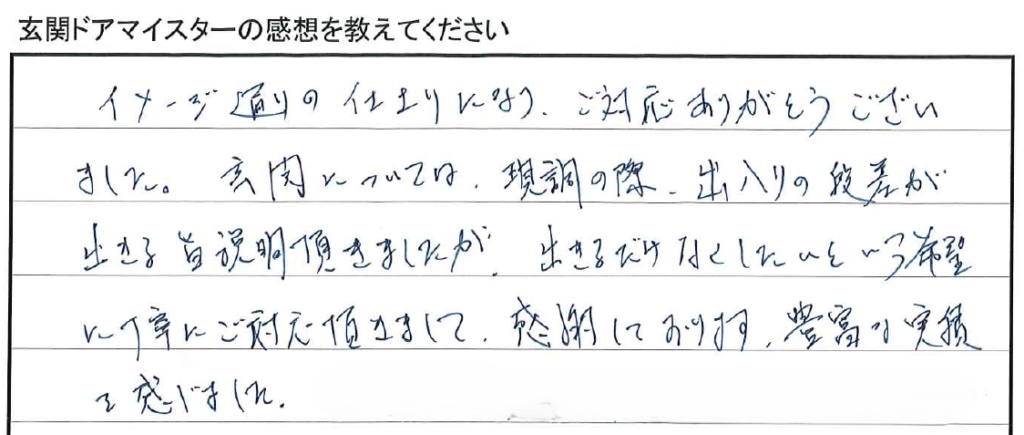 玄関ドアマイスターの感想を教えてください
イメージ通りの仕上りになり、ご対応ありがとうござい
ました。玄関については、現調の際、出入りの段差が
出きる旨説明頂きましたが、出きるだけなくしたいという希望
に丁寧にご対応頂きまして、感謝しております、豊富な実績
を感じました。